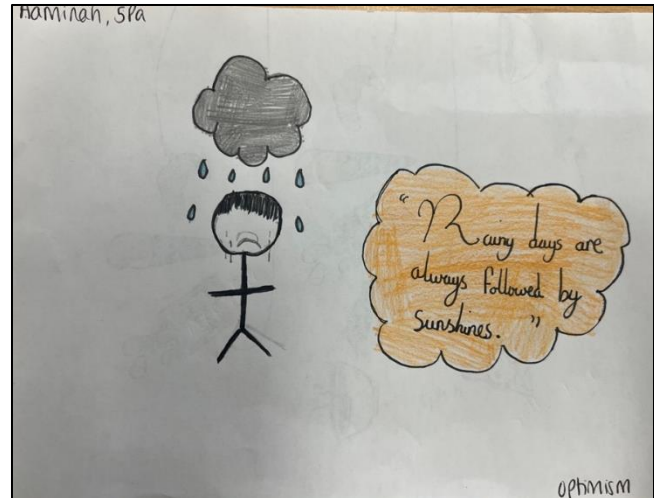 Haminah, 5Pa
"Rainy days are
always followed by
sunshines."
optimism